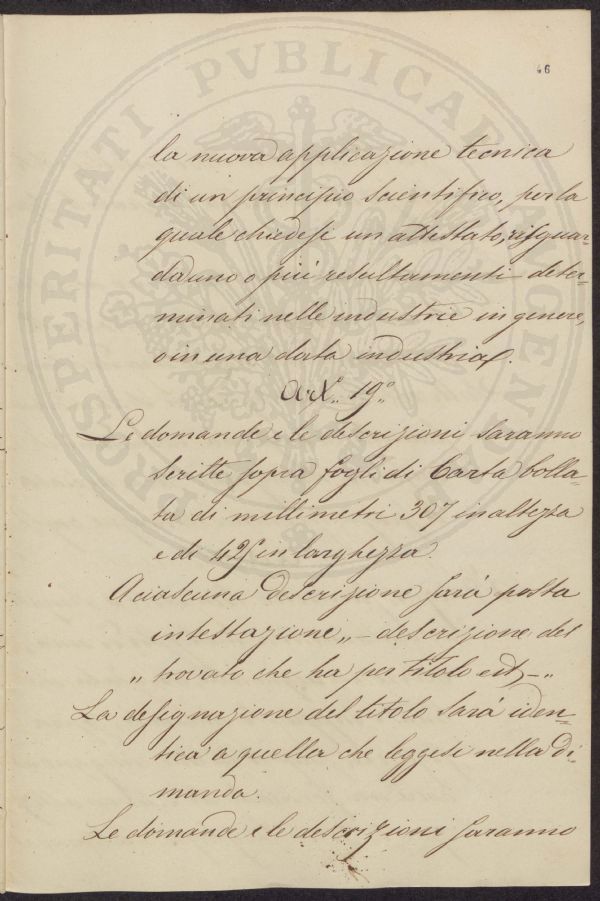 PROSPERITATI PVBLICAE AVGENDAE
46
la nuova applicazione tecnica
di un principio scientifico, per la
quale chiedesi un attestato, risguar-
da uno o più resultamenti deter-
minati nelle industrie in genere,
o in una data industria.
Art.° 19.°
Le domande e le descrizioni saranno
scritte sopra fogli di Carta bolla-
ta di millimetri 307 in altezza
e di 425 in larghezza.
A ciascuna descrizione sarà posta
intestazione „ – descrizione del
„ trovato che ha per titolo –„
La designazione del titolo sarà iden-
tica a quella che leggesi nella di-
manda.
Le domande e le descrizioni saranno